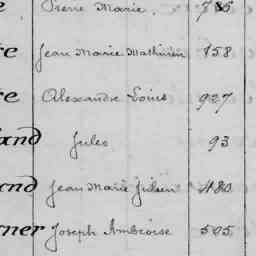 e Pierre Marie.
re Jean Marie Mathurin 158
re Alexandre Louis 927
and Jules 93
and Jean Marie Julien 480
ner Joseph Ambroise 505